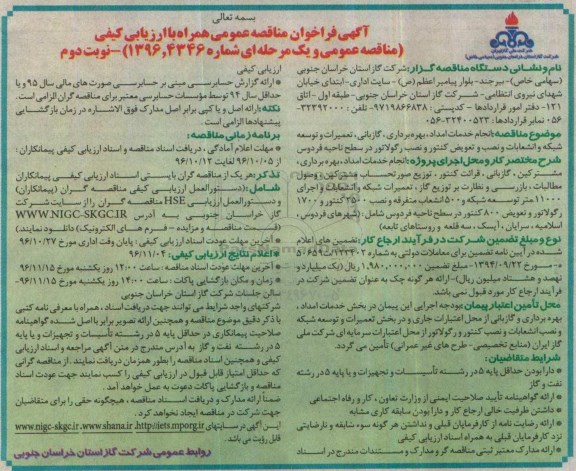 بسمه تعالی
آگهی فراخوان مناقصه عمومی همراه با ارزیابی کیفی
(مناقصه عمومی و یک مرحله ای شماره ۱۳۹۶,۴۳۴۶) -نوبت دوم
شرکت ملی گاز ایران
نام و نشانی دستگاه مناقصه گزار: شرکت گاز استان خراسان جنوبی
(سهامی خاص)- بیرجند- بلوار پیامبر اعظم (ص) - سایت اداری- ابتدای خیابان
شهدای نیروی انتظامی- شرکت گاز استان خراسان جنوبی- طبقه اول - اتاق
۱۲۱- دفتر امور قراردادها - کدپستی: ۹۷۱۹۸۶۶۸۳۸- تلفن: ۳۲۳۹۲۰۰۰-
۰۵۶ نمابر قراردادها: ۳۲۴۰۰۵۲۳-۰۵۶
موضوع مناقصه: انجام خدمات امداد، بهره برداری، گازبانی، تعمیرات و توسعه
شبکه و انشعابات و نصب و تعویض کنتور و نصب رگولاتور در سطح ناحیه فردوس
شرح مختصر کار و محل اجرای پروژه: انجام خدمات امداد، بهره برداری،
مشترکین، گازبانی، قرائت کنتور، توزیع صورتحساب مشترکین، وصول
مطالبات، بازرسی و نظارت بر توزیع گاز، تعمیرات شبکه و انشعابات و اجرای
۱۱۰۰۰ متر توسعه شبکه و ۵۰۰ انشعاب متفرقه و نصب ۲۵۰۰ کنتور و ۱۷۰۰
رگولاتور و تعویض ۸۰۰ کنتور در سطح ناحیه فردوس شامل: (شهرهای فردوس،
اسلامیه، سرایان، آیسک، سه قلعه و روستاهای تابعه)
نوع و مبلغ تضمین شرکت در فرآیند ارجاع کار: تضمین های اعلام
شده در آیین نامه تضمین برای معاملات دولتی به شماره
مورخ ۱۳۹۴/۰۹/۲۲- مبلغ تضمین ۱,۹۸۰,۰۰۰,۰۰۰ ریال (یک میلیارد و
نهصد و هشتاد میلیون ریال)- ارائه هر گونه چک به عنوان تضمین شرکت در
فرآیند ارجاع کار مورد قبول نمی باشد.
محل تأمین اعتبار پیمان: بودجه اجرایی این پیمان در بخش خدمات امداد،
بهره برداری و گازبانی از محل اعتبارات جاری و در بخش تعمیرات و توسعه شبکه
و نصب انشعابات و نصب کنتور و رگولاتور از محل اعتبارات سرمایه ای شرکت ملی
گاز ایران (منابع تخصیصی- طرح های غیر عمرانی) تأمین می گردد.
شرایط متقاضیان:
* دارا بودن حداقل پایه ۵ در رشته تأسیسات و تجهیزات و یا پایه ۵ در رشته
نفت و گاز
* ارائه گواهینامه تأیید صلاحیت ایمنی از وزارت تعاون، کار و رفاه اجتماعی
داشتن ظرفیت خالی ارجاع کار و دارا بودن سابقه کاری مشابه
* ارائه رضایت نامه از کارفرمایان قبلی و نداشتن هر گونه سوء سابقه و نارضایتی
نزد کارفرمایان قبلی به همراه اسناد ارزیابی کیفی
* ارائه مدارک معتبر ثبتی مناقصه گر و مدارک و مستندات مندرج در اسناد
ارزیابی کیفی
* ارائه گزارش حسابرسی مبنی بر حسابرسی صورت های مالی سال ۹۵ و یا
حداقل سال ۹۴ توسط مؤسسات حسابرسی معتبر برای مناقصه گران الزامی است.
نکته: ارائه اصل و یا کپی برابر اصل مدارک فوق الاشاره در زمان بازگشایی
پیشنهادها الزامی است.
برنامه زمانی مناقصه:
* مهلت اعلام آمادگی، دریافت اسناد مناقصه و اسناد ارزیابی کیفی پیمانکاران:
از ۹۶/۱۰/۰۵ لغایت ۹۶/۱۰/۱۲
تذکر: هر یک از مناقصه گران بایستی اسناد ارزیابی کیفی پیمانکاران
شامل: (دستورالعمل ارزیابی کیفی مناقصه گران (پیمانکاران)
و دستورالعمل ارزیابی HSE مناقصه گران را از سایت شرکت
گاز خراسان جنوبی به آدرس WWW.NIGC-SKGC.IR
(قسمت مناقصه و مزایده - فرم های الکترونیک) دانلود نمایند)
* آخرین مهلت عودت اسناد ارزیابی کیفی: پایان وقت اداری مورخ ۹۶/۱۰/۲۷
* اعلام نتایج ارزیابی کیفی: ۹۶/۱۱/۰۴
* آخرین مهلت عودت اسناد مناقصه: ساعت ۱۲:۰۰ روز یکشنبه مورخ ۹۶/۱۱/۱۵
* زمان و مکان بازگشایی پاکات: ساعت ۱۴:۰۰ روز یکشنبه مورخ ۹۶/۱۱/۱۵-
سالن جلسات شرکت گاز استان خراسان جنوبی
شرکتهای واجد شرایط می توانند جهت دریافت اسناد، همراه با معرفی نامه کتبی
با ذکر دقیق موضوع مناقصه و همچنین ارائه تصویر برابر با اصل شده گواهینامه
صلاحیت پیمانکاری در حداقل پایه ۵ در رشته تأسیسات و تجهیزات و یا پایه
۵ در رشته نفت و گاز به آدرس مندرج در متن آگهی مراجعه و اسناد ارزیابی
کیفی و همچنین اسناد مناقصه را بطور همزمان دریافت نمایند. از مناقصه گرانی
که حداقل امتیاز قابل قبول در ارزیابی کیفی را کسب نمایند جهت عودت اسناد
مناقصه و بازگشایی پاکات دعوت به عمل خواهد آمد.
ضمناً ارائه مدارک و دریافت اسناد مناقصه، هیچگونه حقی را برای متقاضیان
جهت شرکت در مناقصه ایجاد نخواهد کرد.
این آگهی در سایتهای www.nigc-skgc.ir ،www.shana.ir ،http://iets.mporg.ir
قابل رؤیت می باشد.
روابط عمومی شرکت گاز استان خراسان جنوبی